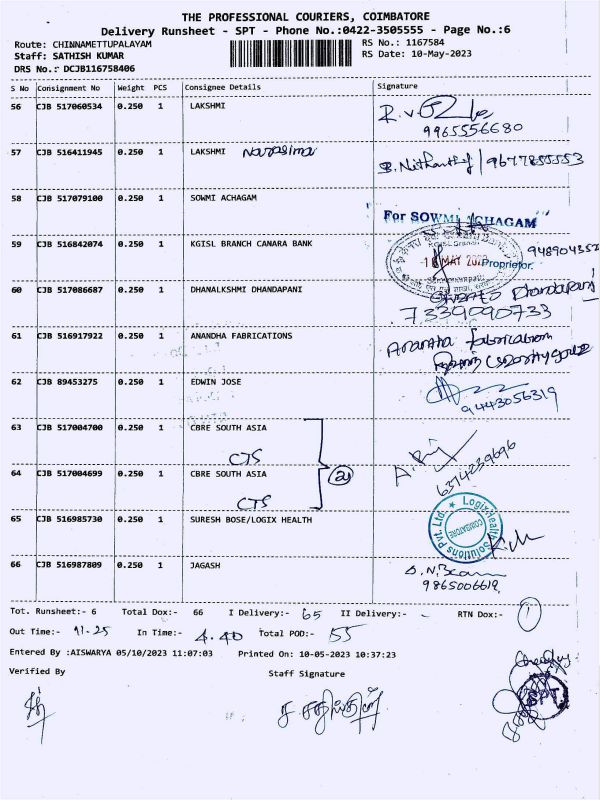 THE PROFESSIONAL COURIERS, COIMBATORE
Delivery Runsheet - SPT - Phone No.:0422-3505555 - Page No.:6
Route: CHINNAMETTUPALAYAM RS No.: 1167584
Staff: SATHISH KUMAR RS Date: 10-May-2023
DRS No.: DCJB116758406
S No Consignment No Weight PCS Consignee Details Signature
56 CJB 517060534 0.250 1 LAKSHMI
9965556680
57 CJB 516411945 0.250 1 LAKSHMI Narasima B. 9677855553
58 CJB 517079100 0.250 1 SOWMI ACHAGAM
For SOWMI ACHAGAM
59 CJB 516842074 0.250 1 KGISL BRANCH CANARA BANK
MAY Proprietor.
60 CJB 517086687 0.250 1 DHANALKSHMI DHANDAPANI Dhandapani
7339090733
61 CJB 516917922 0.250 1 ANANDHA FABRICATIONS Anantha fabrication
62 CJB 89453275 0.250 1 EDWIN JOSE
9443056319
63 CJB 517004700 0.250 1 CBRE SOUTH ASIA
CTS
64 CJB 517004699 0.250 1 CBRE SOUTH ASIA
6374239696
CTS
65 CJB 516985730 0.250 1 SURESH BOSE/LOGIX HEALTH
LogixHealth Solutions Pvt. Ltd.
COIMBATORE
66 CJB 516987809 0.250 1 JAGASH
9865006619
Tot. Runsheet:- 6 Total Dox:- 66 I Delivery:- 65 II Delivery:- RTN Dox:- 1
Out Time:- 11.25 In Time:- 4.40 Total POD:- 55
Entered By :AISWARYA 05/10/2023 11:07:03 Printed On: 10-05-2023 10:37:23
Verified By Staff Signature
SPT